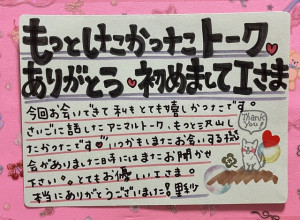 もっとしたかったこトーク
ありがとう♥初めましてIさま
今回お会いできて私もとても嬉しかったです。
さいごに話したアニマルトーク、もっと沢山し
たかったです♡いつかまたお会いする機
会がありました時にはまたお聞かせ
下さい。とてもお優しいIさま。
本当にありがとうございました!
Thank you!